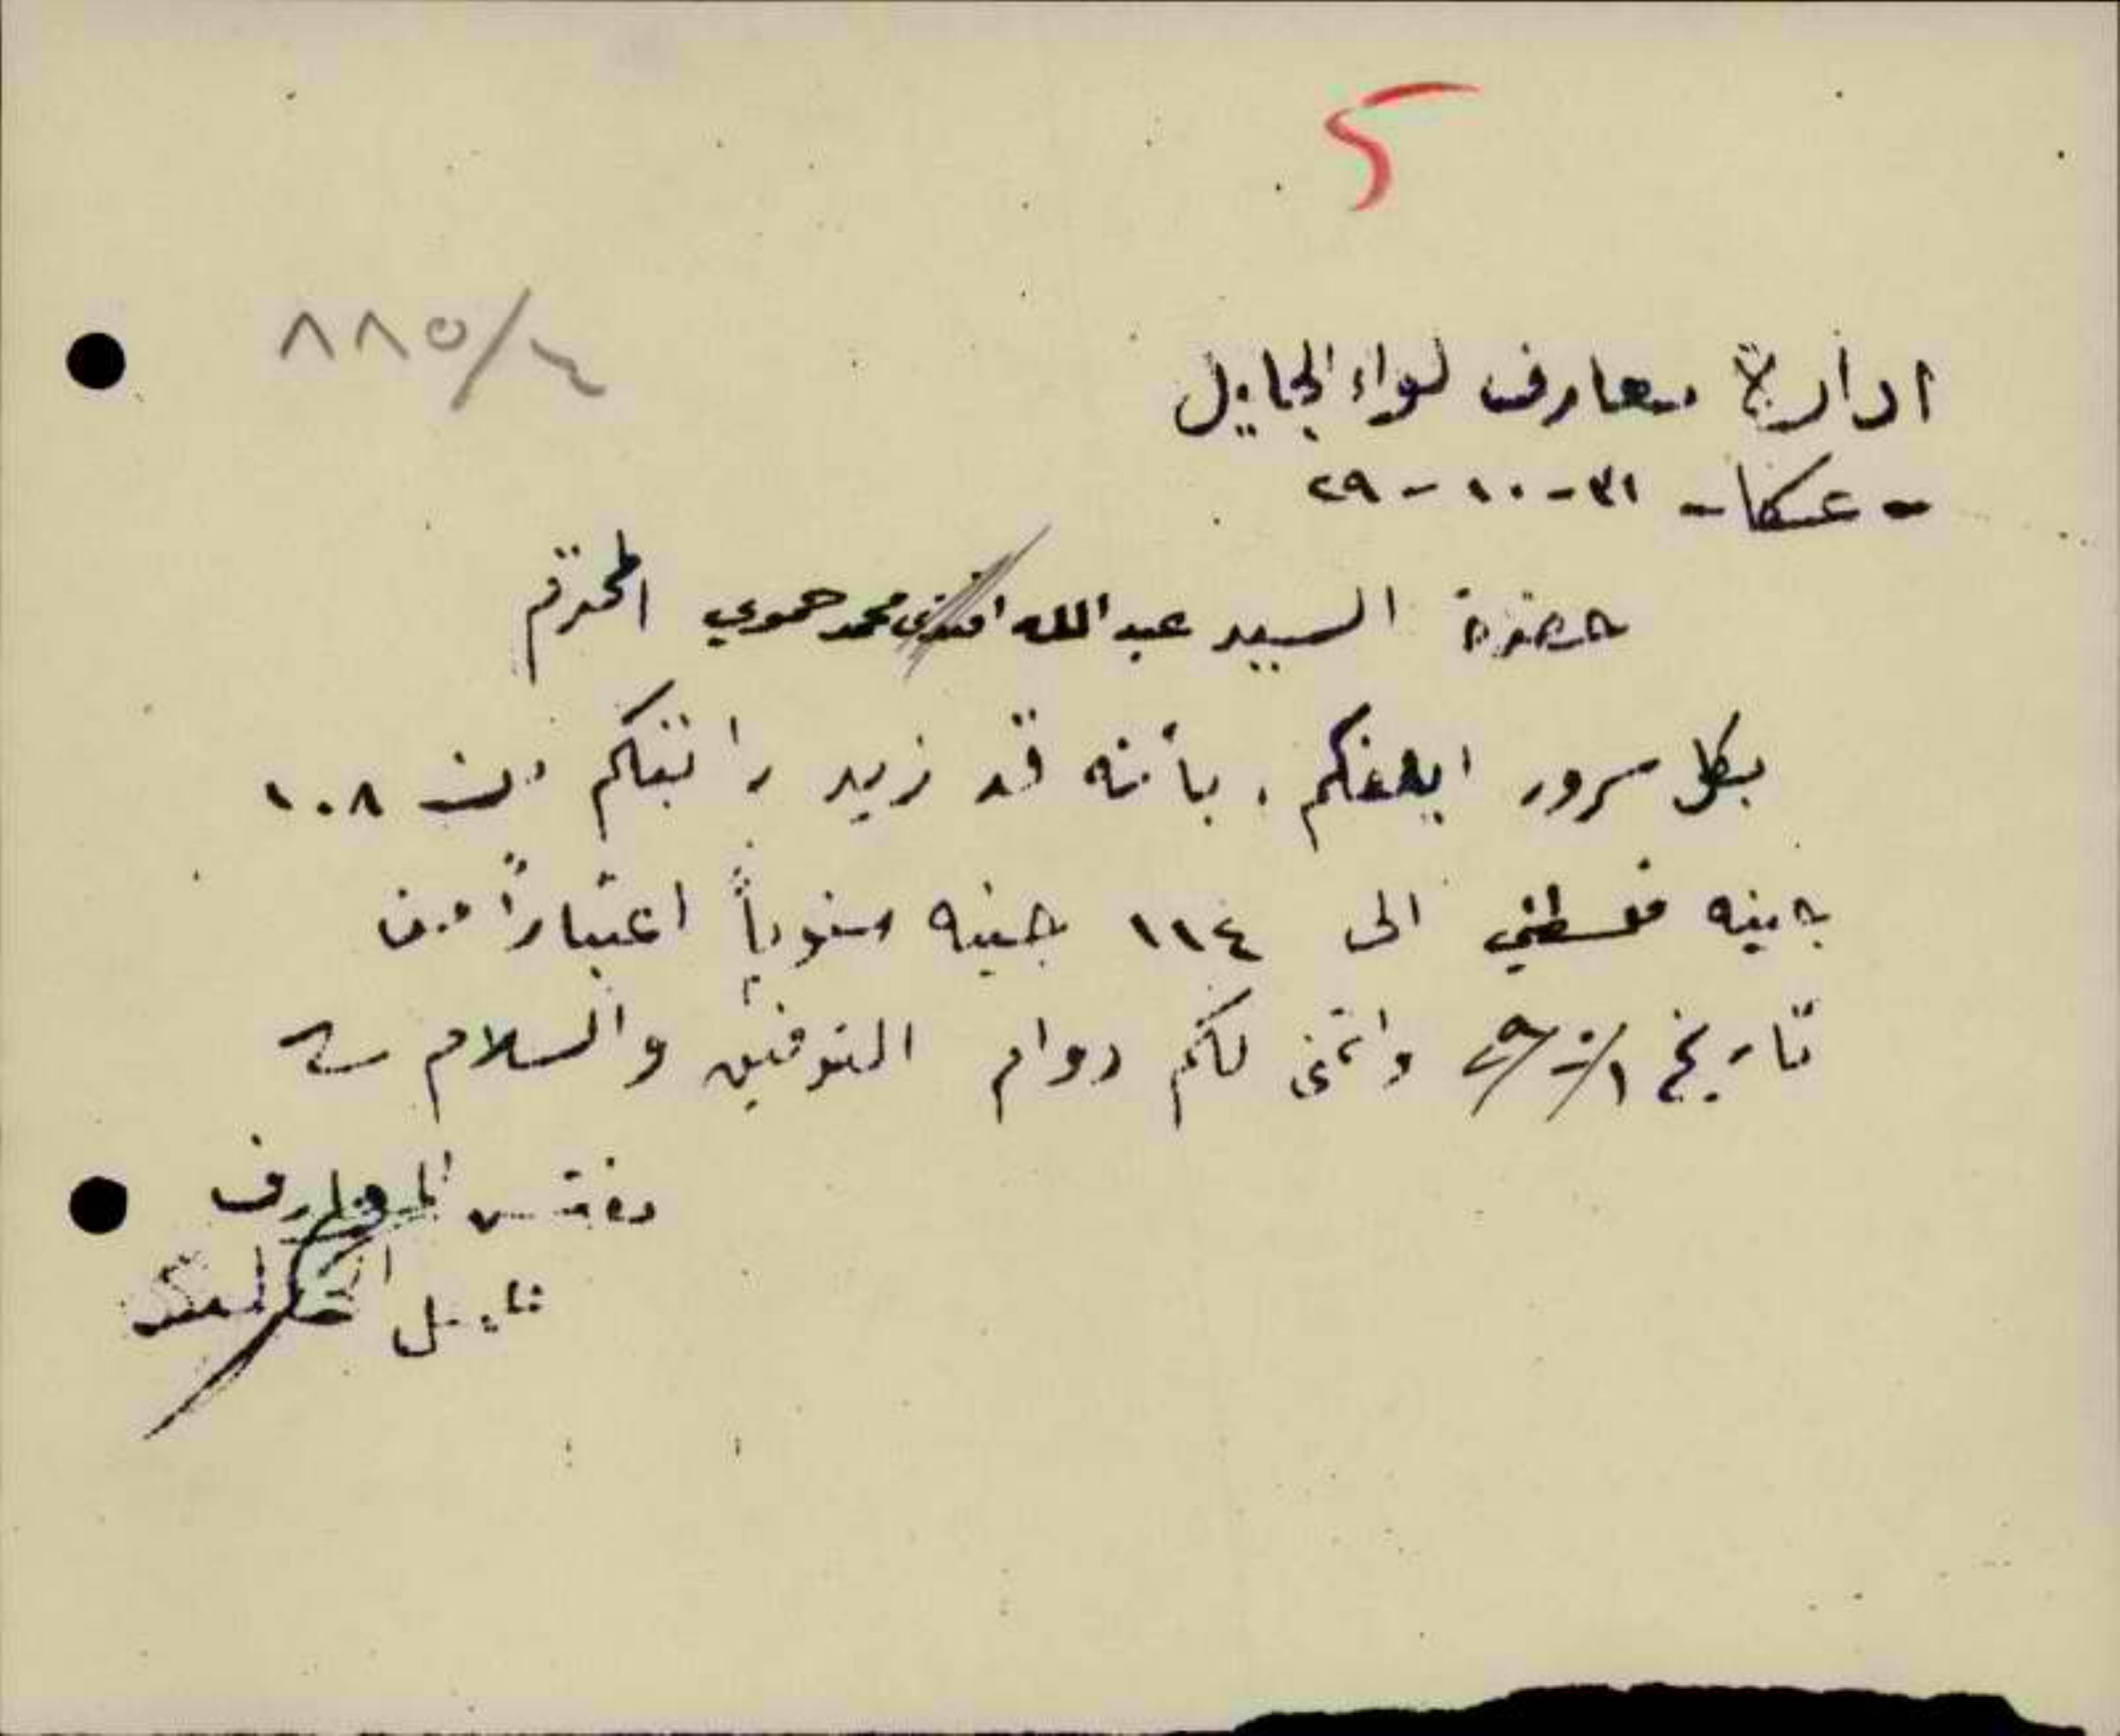 ٥
٨٨٥/٤
ادارة معارف لواء الجليل
- عكا - ٣١-١٠-٢٩
حضرة السيد عبد الله افندي محمد حموي المحترم
بكل سرور ابلغكم، بأنه قد زيد راتبكم من ١٠٨
جنيه فلسطيني الى ١١٤ جنيه سنوياً اعتباراً من
تاريخ ١/١٠/٢٩ واتمنى لكم دوام التوفيق والسلام
مفتش المعارف